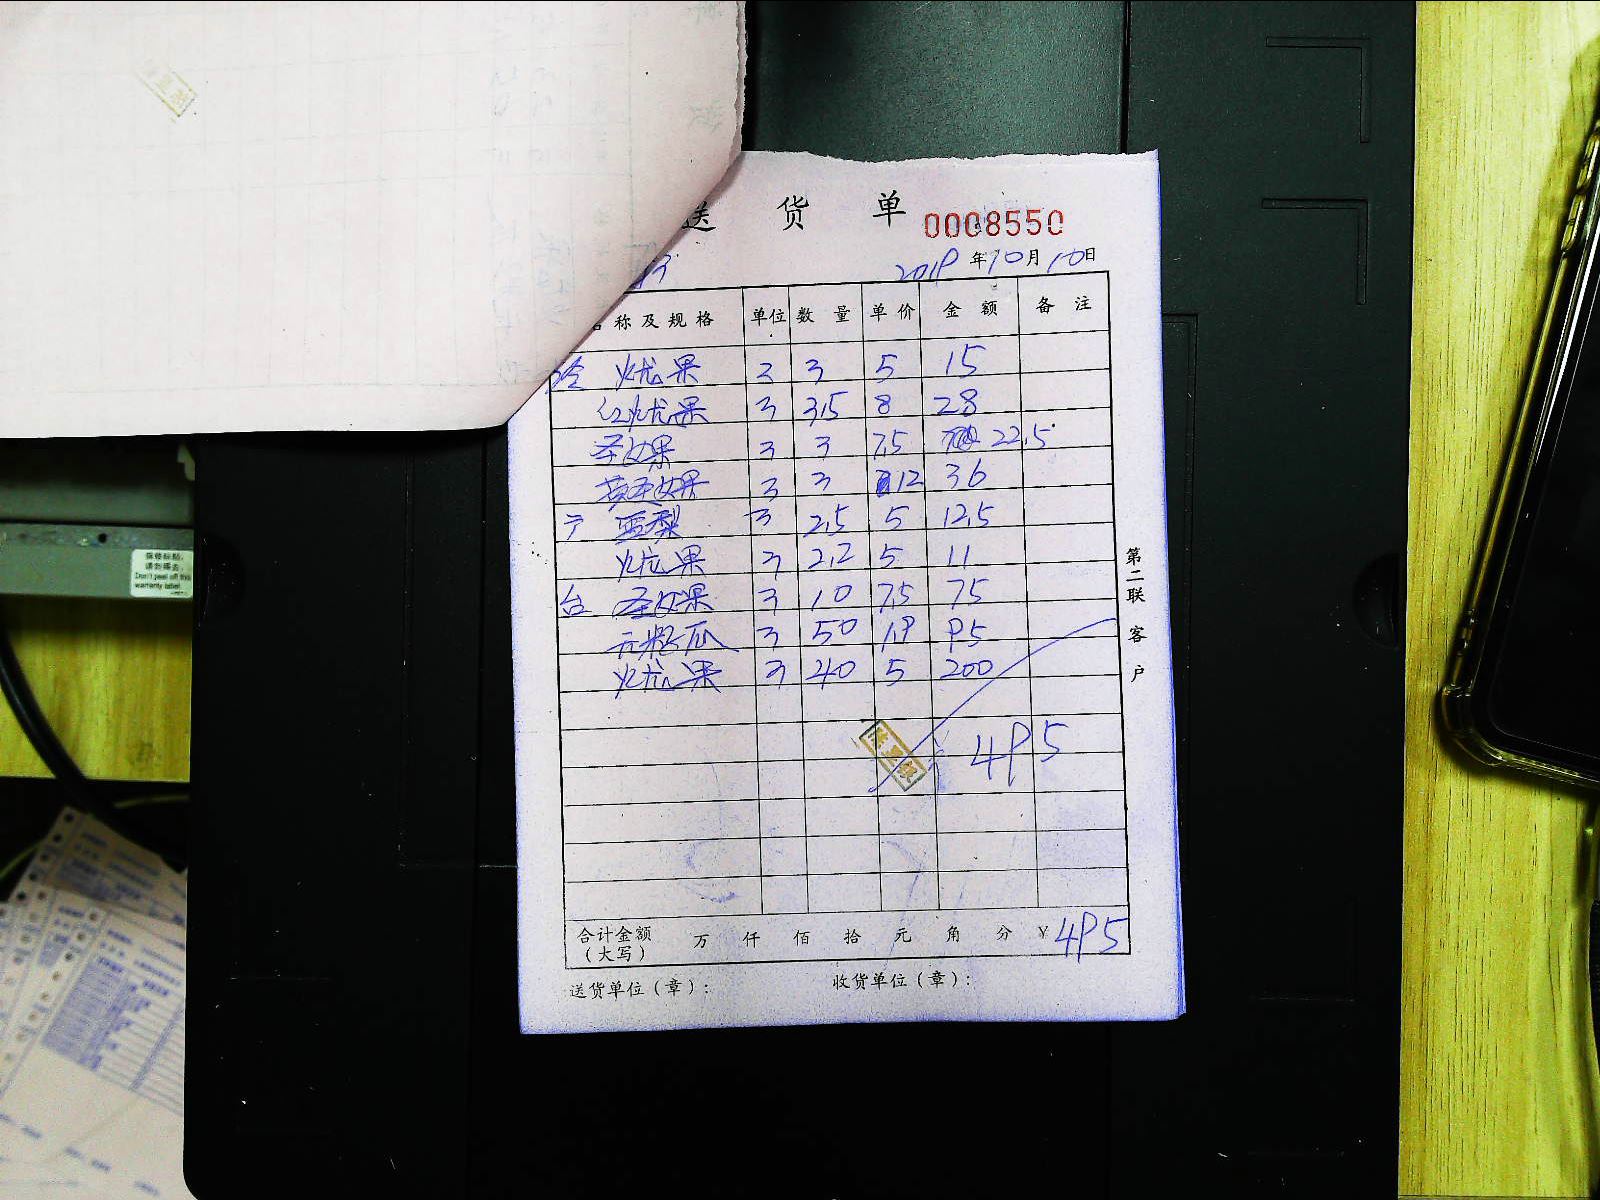 送 货 单 0008550
2019 年 10 月 10 日
名 称 及 规 格 单位 数 量 单 价 金 额 备 注
冷 火龙果 3 3 5 15
红火龙果 3 3.5 8 28
圣女果 3 3 7.5 22.5
黄圣女果 3 3 12 36
3 2.5 5 12.5
火龙果 3 2.2 5 11
台 圣女果 3 10 7.5 75
瓜 3 50 1.9 95
火龙果 3 40 5 200
495
合计金额
（大写） 万 仟 佰 拾 元 角 分 ¥ 495
送货单位（章）： 收货单位（章）：
第二联 客户
保修标贴,
请勿撕去.
Don't peel off this
warranty label